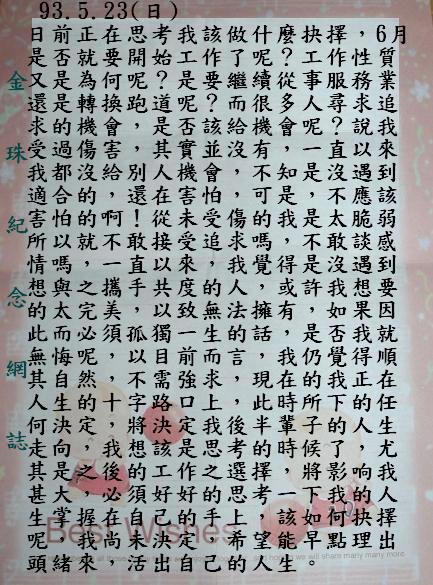 93.5.23(日)
日前正在思考我該做什麼抉擇，6月
是否就要開始工作了呢？工作性質
又是為何呢？是要繼續從事服務業
還是轉換跑道呢？而很多人尋求追
求的機會，是否該給機會呢？說我
受過傷害，其實並沒有，一直以來
我都沒給別人機會，不知是沒遇到
適合的，還在害怕，可是，不應該
害怕的啊！從未受傷的我，是太脆弱
所以就不敢接受追求嗎？不敢談感
情嗎，一直以來，我覺得是沒遇到
想與之攜手共度的人，或許我想要
的太完美，以致無法擁有，如果因
此而必須孤獨一生的話，是否我就
無悔呢，以目前而言，我仍覺得順
其自然，不需強求，現在的我正在
人生的十字路口上，此時所下的任
何決定，將決定我後半輩子的人生
走向，我想該是思考的時候了，尤
其是之後的工作選擇，將影响我
甚大，必須好好思考一下我的人
生掌握在自己的手上，該如何抉擇
呢，我尚未決定，希望能早點理出
頭緒來，活出自己的人生。
金珠紀念網誌
Best Wishes